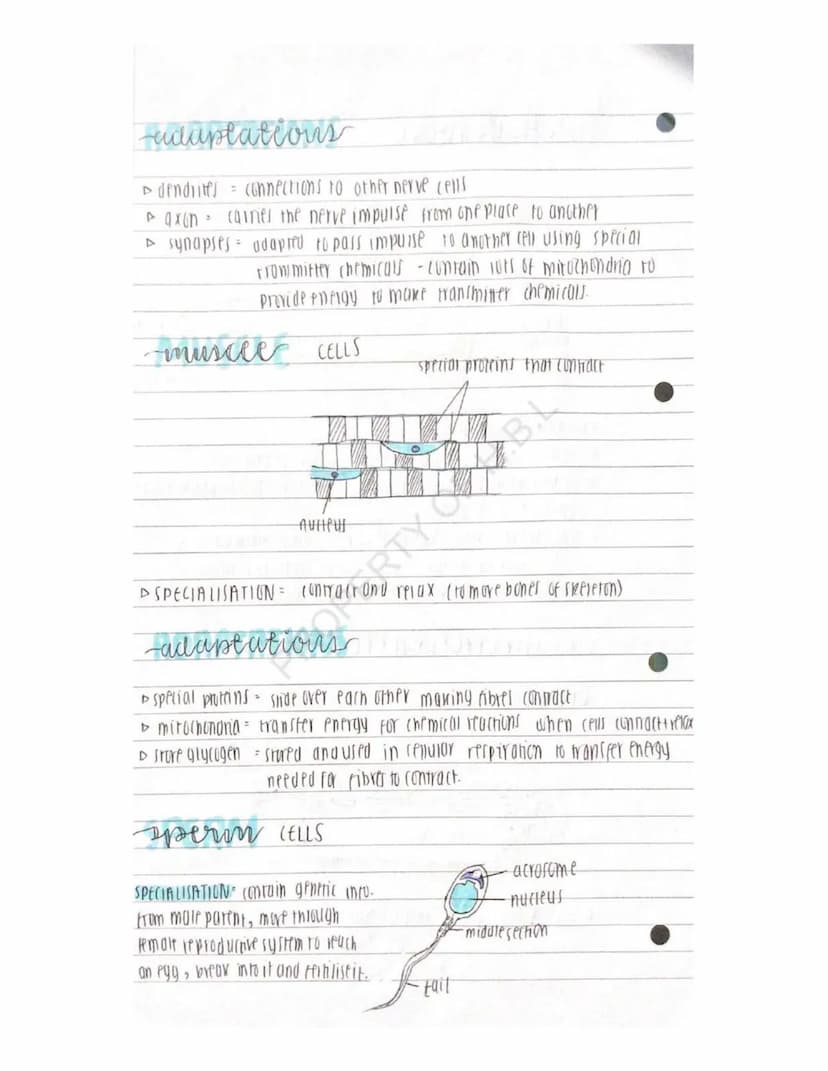 adaptations
▷ dendrites = connections to other nerve cells
▷ axon = carries the nerve impulse from one place to another
▷ synapses = adapted to pass impulse to another cell using special
transmitter chemicals - contain lots of mitochondria to
provide energy to make transmitter chemicals.
muscle CELLS
special proteins that contract
nucleus
▷ SPECIALISATION = contract and relax (to move bones of skeleton)
adaptations
▷ special proteins = slide over each other making fibres contract
▷ mitochondria = transfer energy for chemical reactions when cells contract + relax
▷ store glycogen = stored and used in cellular respiration to transfer energy
needed for fibres to contract.
sperm CELLS
acrosome
SPECIALISATION = contain genetic info.
nucleus
from male parent, move through
middle section
female reproductive system to reach
an egg, break into it and fertilise it.
tail
PROPERTY OF H.B.L